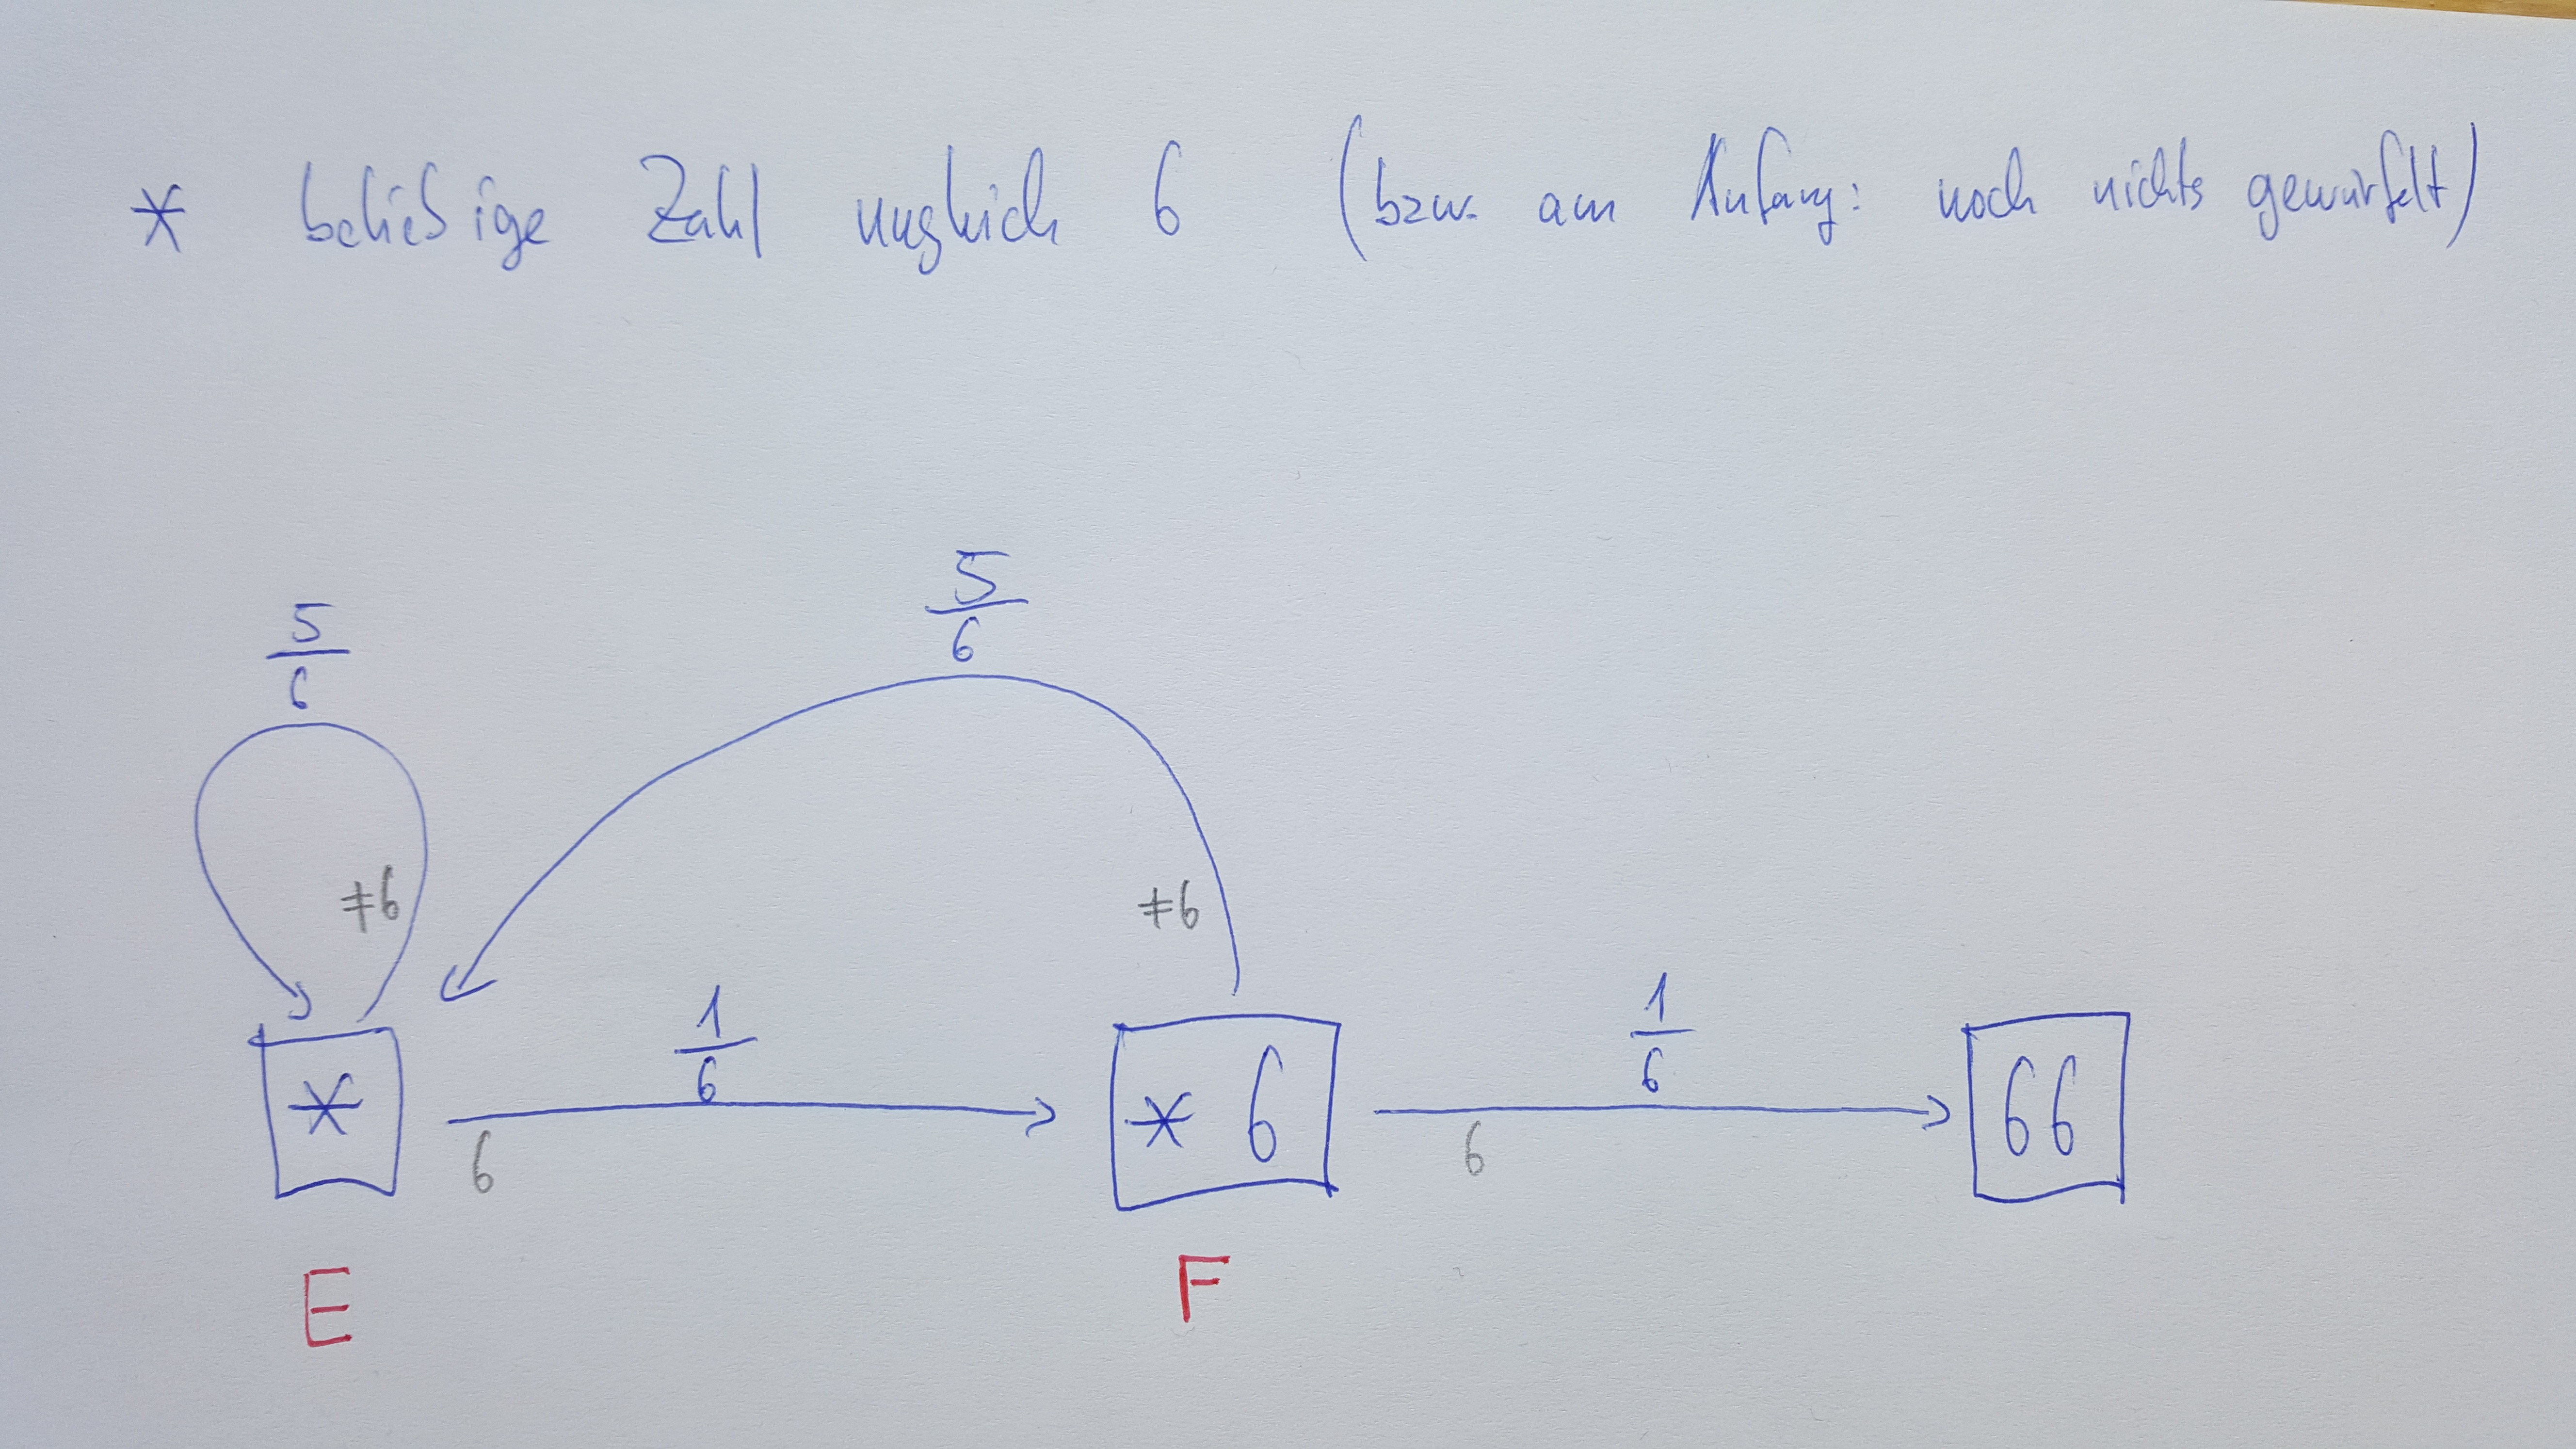 * beliebige Zahl ungleich 6 (bzw. am Anfang: noch nichts gewürfelt)
5/6
5/6
≠6
≠6
1/6
1/6
*
* 6
66
6
6
E
F